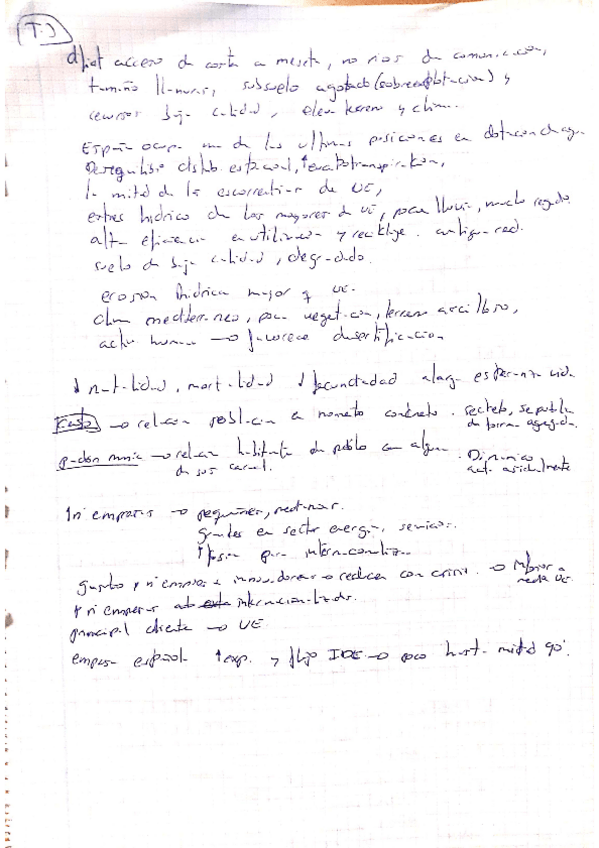 T.1
dificil acceso de costa a meseta, no rios de comunicacion,
tamaño llanuras, subsuelo agotado (sobreexplotacion) y
recursos baja calidad, elev terreno y clima.
España ocupa una de las ultimas posiciones en dotacion de agua
Desequilibrio distrib. espacial, ↑evapotranspiracion,
la mitad de la escorrentia de UE,
estres hidrico de los mayores de UE, poca lluvia, mucho regadio
alta eficiencia en utilizacion y reciclaje. antigua red.
suelo de baja calidad, degradado.
erosion hidrica mayor q UE.
clima mediterraneo, poca vegetacion, terreno arcilloso,
activ humana → favorece desertificacion
↓ natalidad, mortalidad ↓ fecundidad alarga esperanza vida
→ relacion poblacion a momento concreto. secreto, se publica de forma agregada.
padron munic → relacion habitantes de pueblo con algunas de sus caract. Dinamico act. anualmente
Nº empresas → pequeñas, medianas.
grandes en sector energia, servicios.
↑fusion para internacionalizar
gasto y nº empresas innovadoras → reducen con crisis. → inferior a media UE.
nº empresas internacionalizadas.
principal cliente → UE
empresa española ↑exp. y flujo IDE → poco hasta mitad 90'.